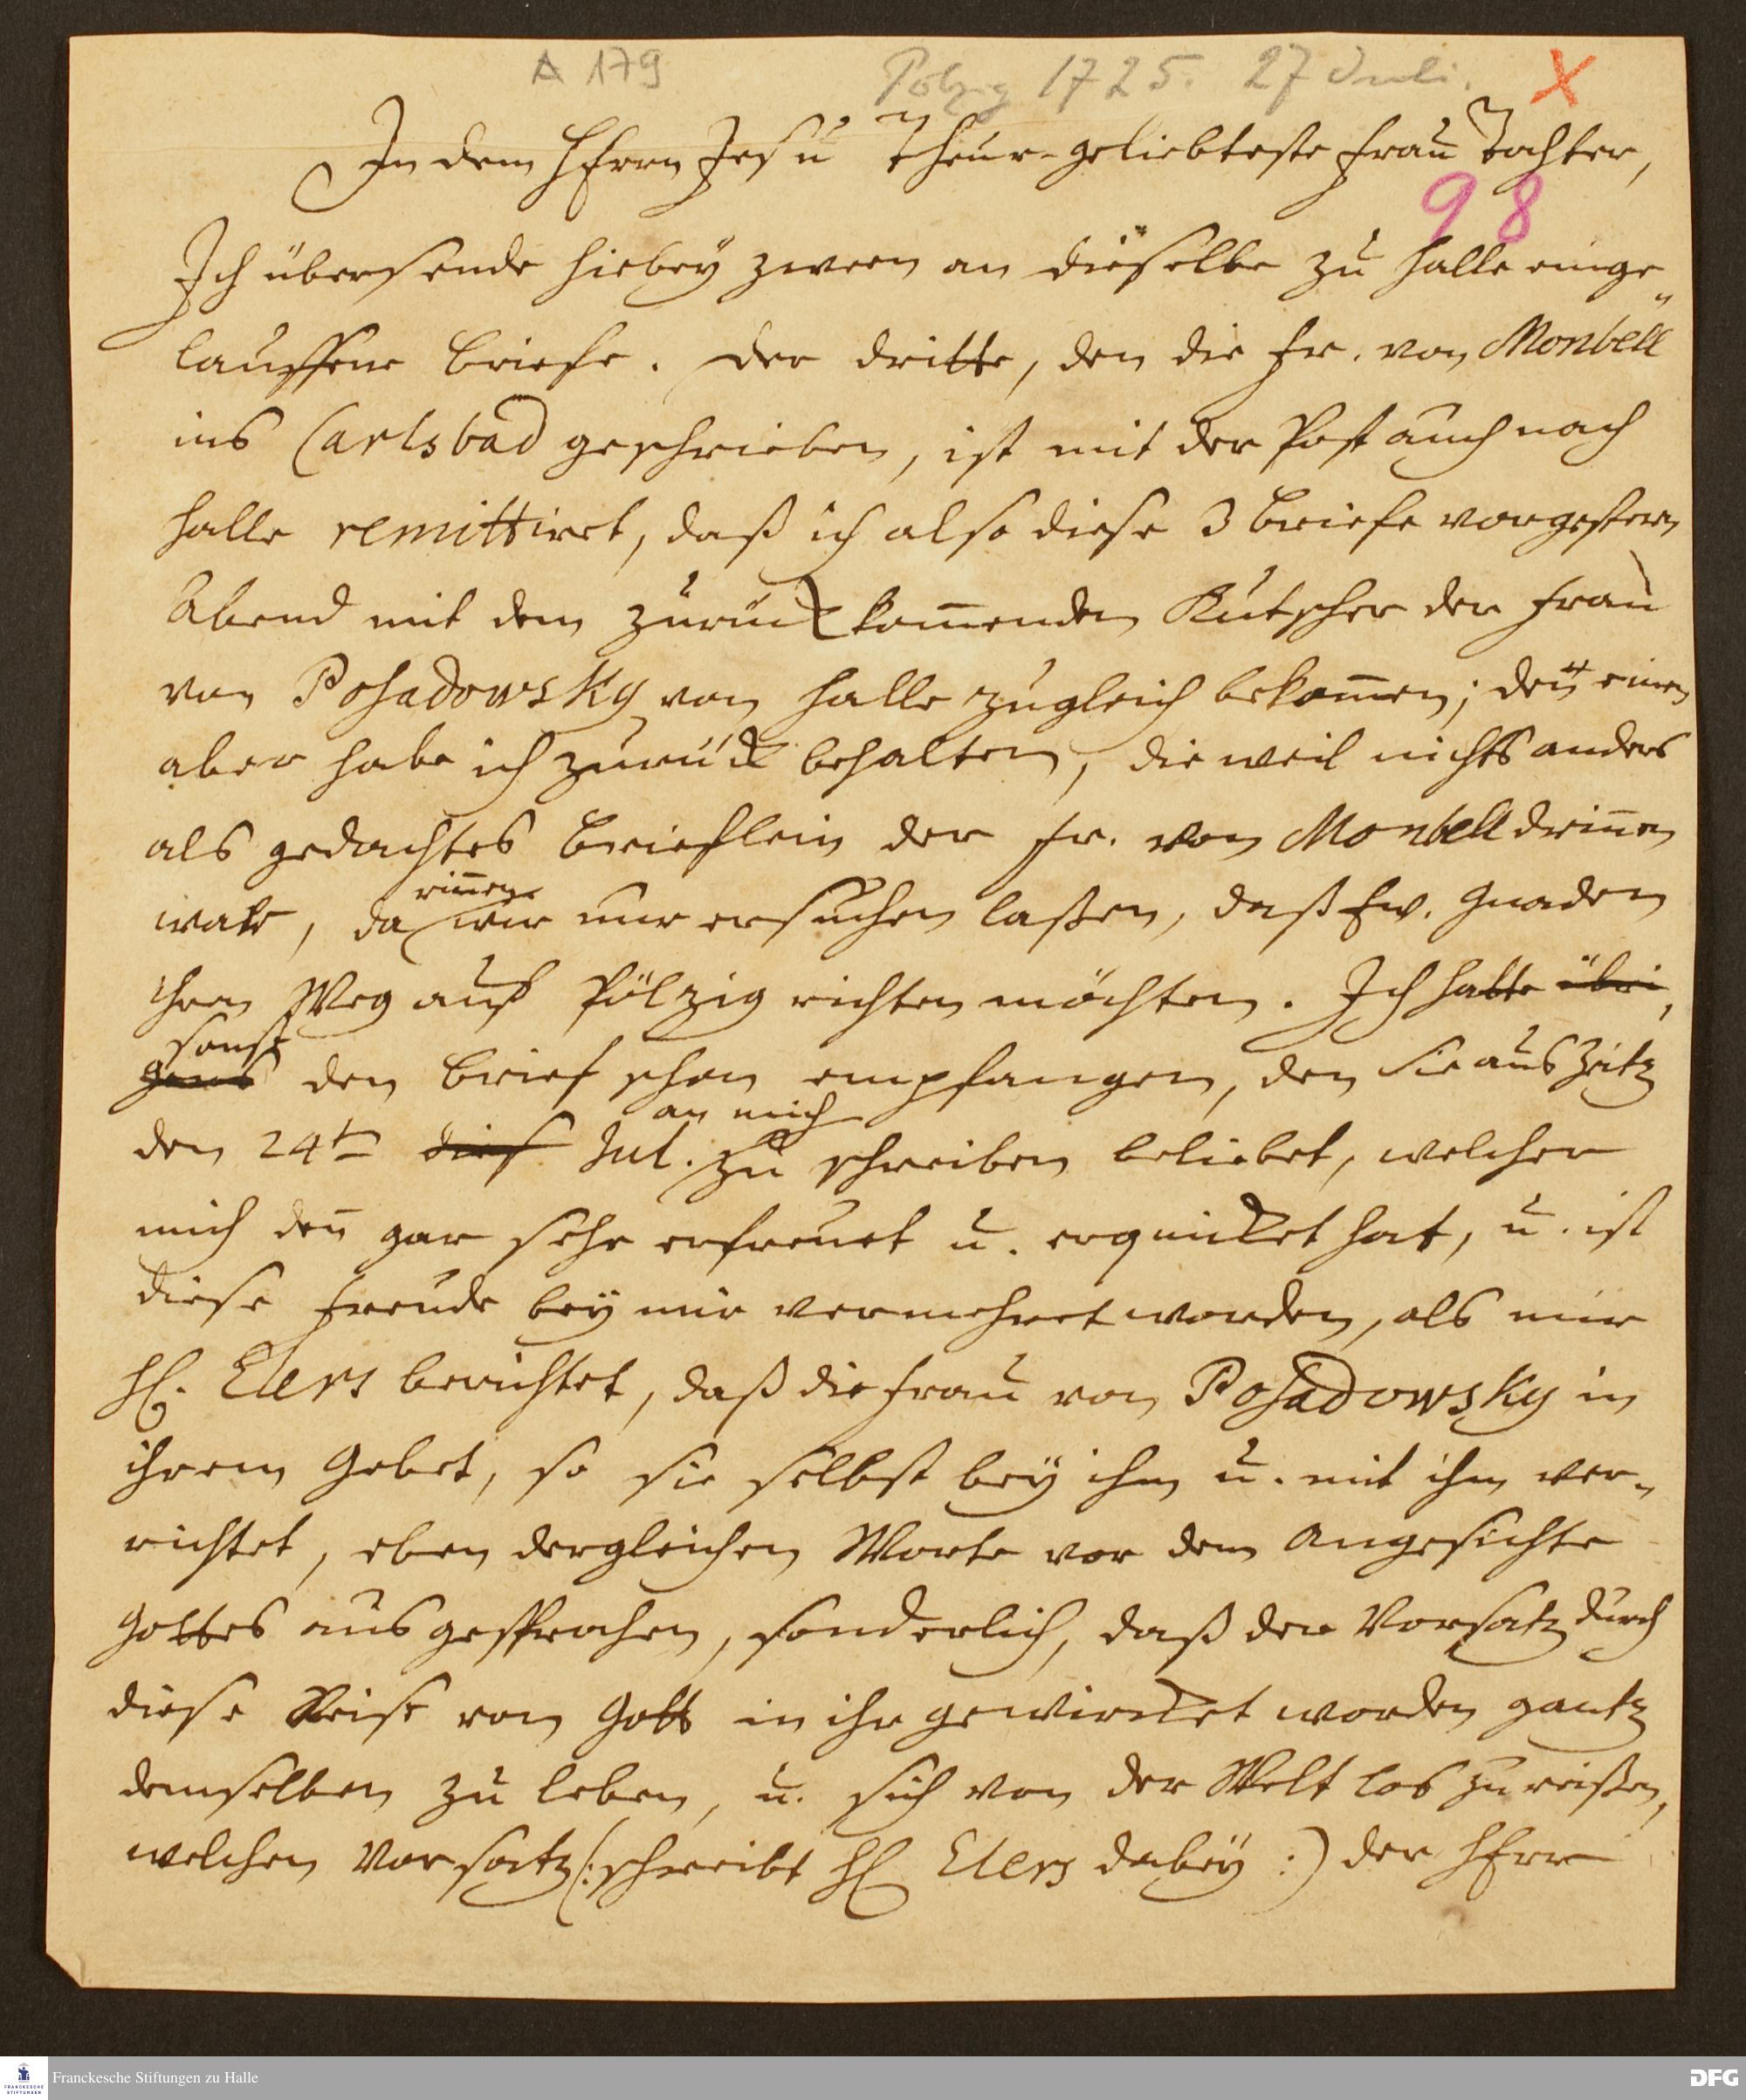 A 179 Pölzig 1725. 27 Juli. X
In dem HErrn Jesu Theur-geliebteste Frau Tochter,
98
Ich übersende hiebey zween an dieselbe zu Halle einge-
lauffene Briefe. Der dritte, den die Fr. von Monbell
ins Carlsbad geschrieben, ist mit der Post auch nach
Halle remittiret, daß ich also diese 3 Briefe vorgestern
Abend mit dem zurück kom̄enden Kutscher der Frau
von Posadowsky von Halle zugleich bekom̄en; den einen
aber habe ich zurück behalten, die weil nichts anders
als gedachtes Brieflein der Fr. von Monbell drin̄en
war, da
rin̄en
wir nur ersuchen laßen, daß Ew. Gnaden
ihren Weg auf Pölzig richten möchten. Ich hatte übri
sonst
gens den Brief schon empfangen, den Sie aus Zeitz
an mich
den 24ten dies Jul. zu schreiben beliebet, welcher
mich den̄ gar sehr erfreuet u. erquicket hat, u. ist
diese Freude bey mir vermehret worden, als mir
H. Elers berichtet, daß die Frau von Posadowsky in
ihrem Gebet, so sie selbst bey ihm u. mit ihm ver-
richtet, eben dergleichen Worte vor dem Angesichte
Gottes ausgesprochen, sonderlich, daß der Vorsatz durch
diese Reise von Gott in ihr gewircket worden gantz
demselben zu leben, u. sich von der Welt los zu reißen,
welchen Vorsatz (: schreibt H Elers dabey :) der HErr
Franckesche Stiftungen zu Halle
FRANCKESCHE STIFTUNGEN
DFG